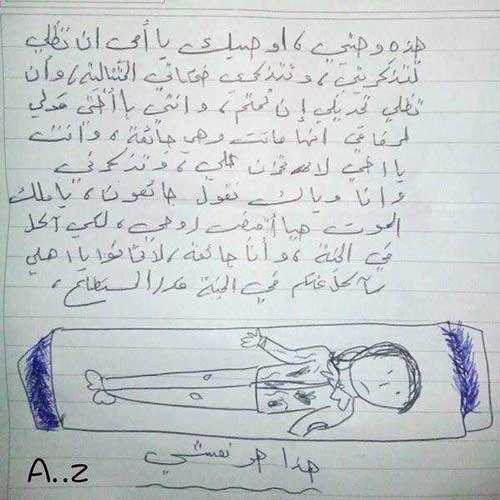 هذه وصيتي، اوصيك يا أمي ان تظلي
تتذكريني، وتتذكري ضحكاتي التالية، وأن
تظلي تحديقي إن نمتم، وانتي يا أختي قولي
لرفاقي انها ماتت وهي جائعة، وأنت
يا اخي لا تحزن علي، وتذكرني
وأنا وياك نقول جائعون، يا ملك
الموت هيا أقبض روحي، لكي آكل
في الجنة، وأنا جائعة، لا تخافوا يا اهلي
سآكل عنكم في الجنة قدر المستطاع،
هذا هو نعشي
A..z